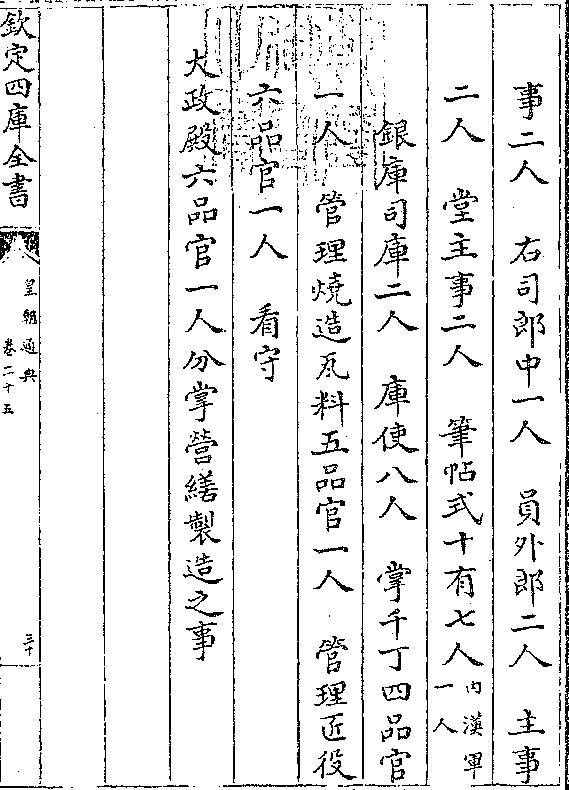 事二人　右司郎中一人　員外郎二人　主事
二人　堂主事二人　筆帖式十有七人內漢軍一人
銀庫司庫二人　庫使八人　掌千丁四品官
一人　管理燒造瓦料五品官一人　管理匠役
六品官一人　看守
大政殿六品官一人分掌營繕製造之事
欽定四庫全書
皇朝通典
卷二十五
三十